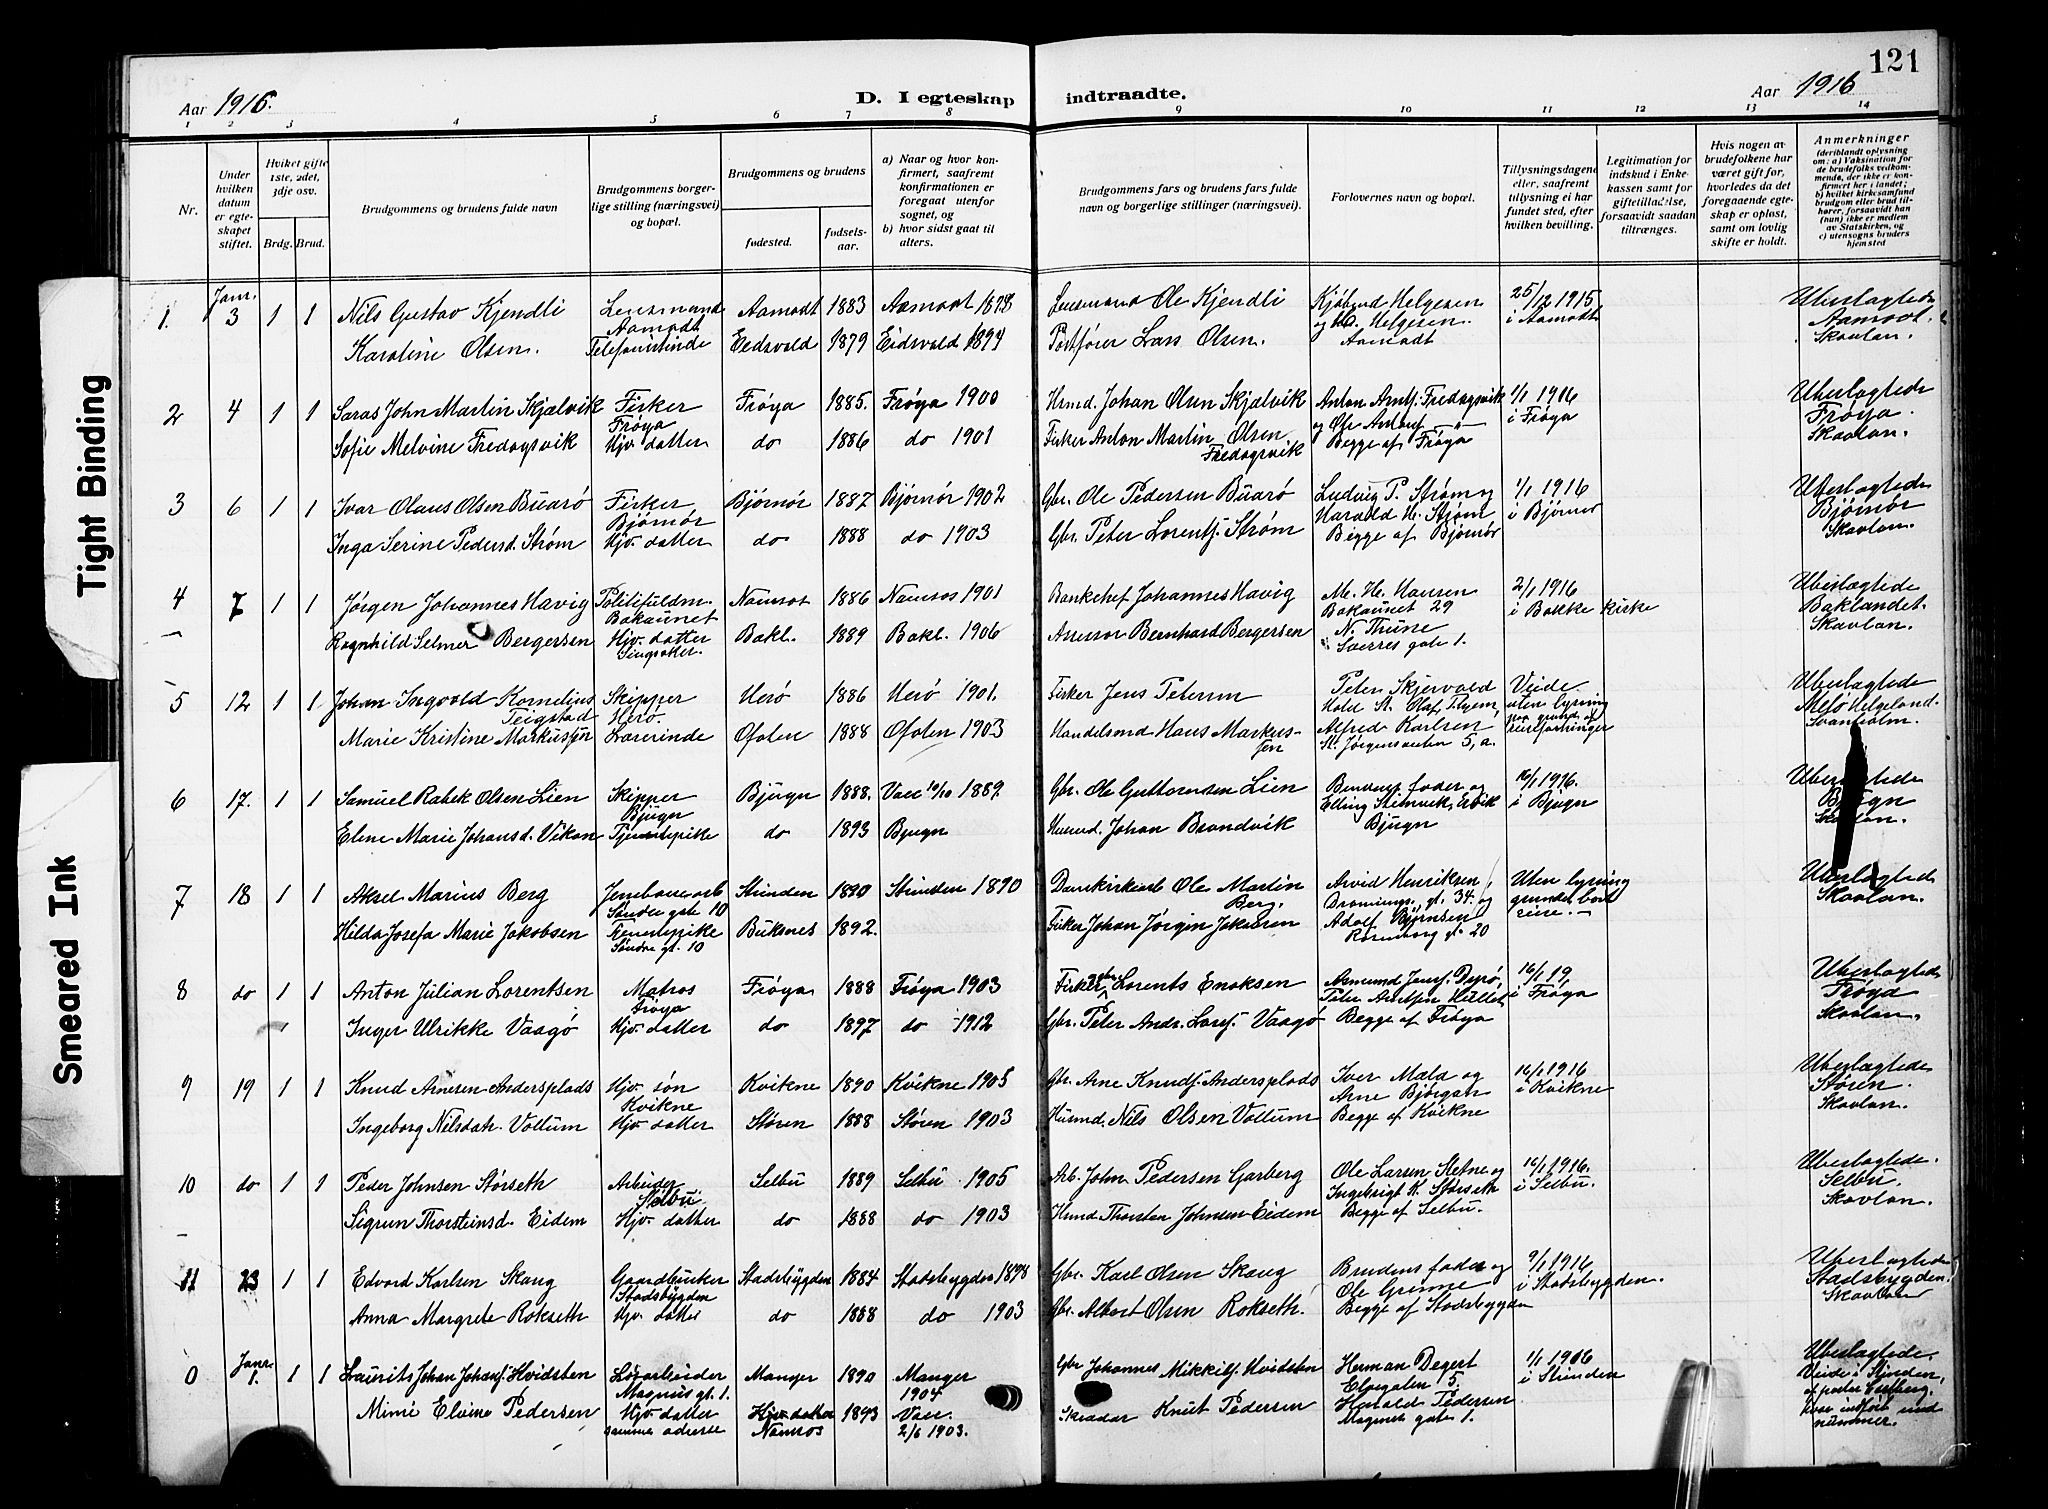 121
Aar 1916.
D. I egteskap indtraadte.
Aar 1916
1 2 3 4 5 6 7 8 9 10 11 12 13 14
Nr.
Under hvilken datum er egteskapet stiftet.
Hviket gifte 1ste, 2det, 3dje osv.
Brdg. Brud.
Brudgommens og brudens fulde navn
Brudgommens borgerlige stilling (næringsvei) og bopæl.
Brudgommens og brudens
fødested.
fødselsaar.
a) Naar og hvor konfirmert, saafremt konfirmationen er foregaat utenfor sognet, og
b) hvor sidst gaat til alters.
Brudgommens fars og brudens fars fulde navn og borgerlige stillinger (næringsvei).
Forlovernes navn og bopæl.
Tillysningsdagene eller, saafremt tillysning ei har fundet sted, efter hvilken bevilling.
Legitimation for indskud i Enkekassen samt for giftetilladelse, forsaavidt saadan tiltrænges.
Hvis nogen av brudefolkene har været gift før, hvorledes da det foregaaende egteskap er opløst, samt om lovlig skifte er holdt.
Anmerkninger
(deriblandt oplysning om: a) Vaksination for de brudefolks vedkommende, der ikke er konfirmert her i landet; b) hvilket kirkesamfund brudgom eller brud tilhører, forsaavidt han (hun) ikke er medlem av Statskirken, og c) utensogns bruders hjemsted
1. Janr. 3 1 1 Nils Gustav Kjendli Lensmand Aamodt Aamodt 1883 Aamodt 1898 Lensmand Ole Kjendli Kjøbmd Helgesen 25/12 1915 Uberlagtede
og Helgesen. i Aamodt Aamodt.
Karoline Olsen. Telefonistinde Eidsvold 1879 Eidsvold 1894 Postfører Lars Olsen. Aamodt Skavlan.
2 4 1 1 Saras John Martin Skjælvik Fisker Frøya 1885. Frøya 1900 Husmd. Johan Olsen Skjælvik Anton Arntj. Fredagsvik 1/1 1916 Uberlagtede
Frøya og Ole i Frøya Frøya.
Sofie Melvine Fredagsvik Hjv. datter do 1886 do 1901 Fisker Anton Martin Olsen Fredagsvik Begge af Frøya Skavlan.
3 6 1 1 Ivar Olaus Olsen Buarø Fisker Bjørnør 1887 Bjørnør 1902 Gbr. Ole Pedersen Buarø Ludvig P. Strøm og 1/1 1916 Uberlagtede
Bjørnør Harald H. Strøm i Bjørnør Bjørnør
Inga Serine Pedersd. Strøm Hjv. datter do 1888 do 1903 Gbr. Peter Lorentsj. Strøm Begge af Bjørnør Skavlan.
4 7 1 1 Jørgen Johannes Havig Politifuldm. Namsos 1886 Namsos 1901 Bankchef Johannes Havig M. H. Hansen 2/1 1916 Uberlagtede
Bakaunet Bakaunet 29 i Bakke kirke Baklandet.
Ragnhild Selmer Bergersen Hjv. datter Bakl. 1889 Bakl. 1906 Assessor Bernhard Bergersen N. Thune Skavlan.
Singsaker. Sverres gate 1.
5 12 1 1 Johan Ingvald Kornelius Teigstad Skipper Herø 1886 Herø 1901. Fisker Jens Petersen Peter Skjervold Viede Uberlagtede
Herø. uten lysning Helgeland.
Marie Kristine Markussen Lærerinde Ofoten 1888 Ofoten 1903 Handelsmd Hans Markussen Alfred Karlsen paa grund af Svanholm.
St. Jørgensveiten 5, a.
6 17. 1 1 Samuel Rabek Olsen Lien Skipper Bjugn 1888. Vacc 10/10 1889. Gbr. Ole Guttormsen Lien Brudens fader og 16/1 1916. Uberlagtede
Bjugn i Bjugn Bjugn
Elene Marie Johansd. Vikan Tjenestepike do 1893 Bjugn Husmd. Johan Brandvik Bjugn Skavlan.
7 18 1 1 Aksel Marius Berg Jernbanearb Strinden 1890 Strinden 1890 Ole Martin Berg. Arvid Henriksen, Uten lysning Uberlagtede
Søndre gate 10 gt. 34. og grundet bort Skavlan.
Hilda Josefa Marie Jakobsen Tjenestepike Buksnes 1892. Fisker Johan Jørgin Jakobsen Adolf Bjørnsen reise.
Søndre gt. 10 Rosenborg gt. 20
8 do 1 1 Anton Julian Lorentsen Matros Frøya 1888 Frøya 1903 Fisker Lorents Enoksen Asmund Dyrø, 16/1 19 Uberlagtede
Frøya i Frøya Frøya
1 Inger Ulrikke Vaagø Hjv. datter do 1897 do 1912 Gbr. Peter Andr. Vaagø Begge af Frøya Skavlan.
9 19 1 1 Knud Arnesen Andersplads Hjv. søn Kvikne 1890 Kvikne 1905 Gbr. Arne Knudsj. Andersplads Iver Mæld og 16/1 1916 Uberlagtede
Kvikne Arne Bjørgan i Kvikne Støren.
Ingeborg Nilsdatr. Vollum Hjv. datter Støren 1888 Støren 1903 Husmd. Nils Olsen Vollum Begge af Kvikne Skavlan.
10 do 1 1 Peder Johnsen Størseth Arbeider Selbu 1889 Selbu 1905 Arb. John Pedersen Garberg Ole Larsen Stetne og 16/1 1916. Uberlagtede.
Selbu Ingebrigt K. Størseth i Selbu. Selbu.
Sigrun Thorsteinsd. Eidem Hjv. datter do 1888 do 1903 Husmd Thorsten Johnsen Eidem Begge af Selbu. Skavlan.
11 23 1 1 Edvard Karlsen Skaug Gaardbruker Stadsbygden 1884 Stadsbygden 1898 Gbr. Karl Olsen Skaug Brudens fader og 9/1 1916 Uberlagtede
Stadsbygden Ole Grønne i Stadsbygden. Stadsbygden.
Anna Margrete Rokseth Hjv. datter do 1888 do 1903 Gbr. Albert Olsen Rokseth. Begge af Stadsbygden Skavlan
0 Janr. 1. 1 1 Laurits Johan Johansj. Hvidsten Løsarbeider Manger 1890 Manger 1904 Gbr Johannes Mikkelsj. Hvidsten Herman Degert 1/1 1916 Uberlagtede.
Magnus gt. 1. Elvegaten 5. i Strinden Viede i Strinden,
Mimi Elvine Pedersen Hjv. datter Namsos 1893 Vacc. 2/6 1903. Skrædder Knut Pedersen Harald Pedersen
samme adresse Magnus gate 1. nummer.
Tight Binding
Smeared Ink